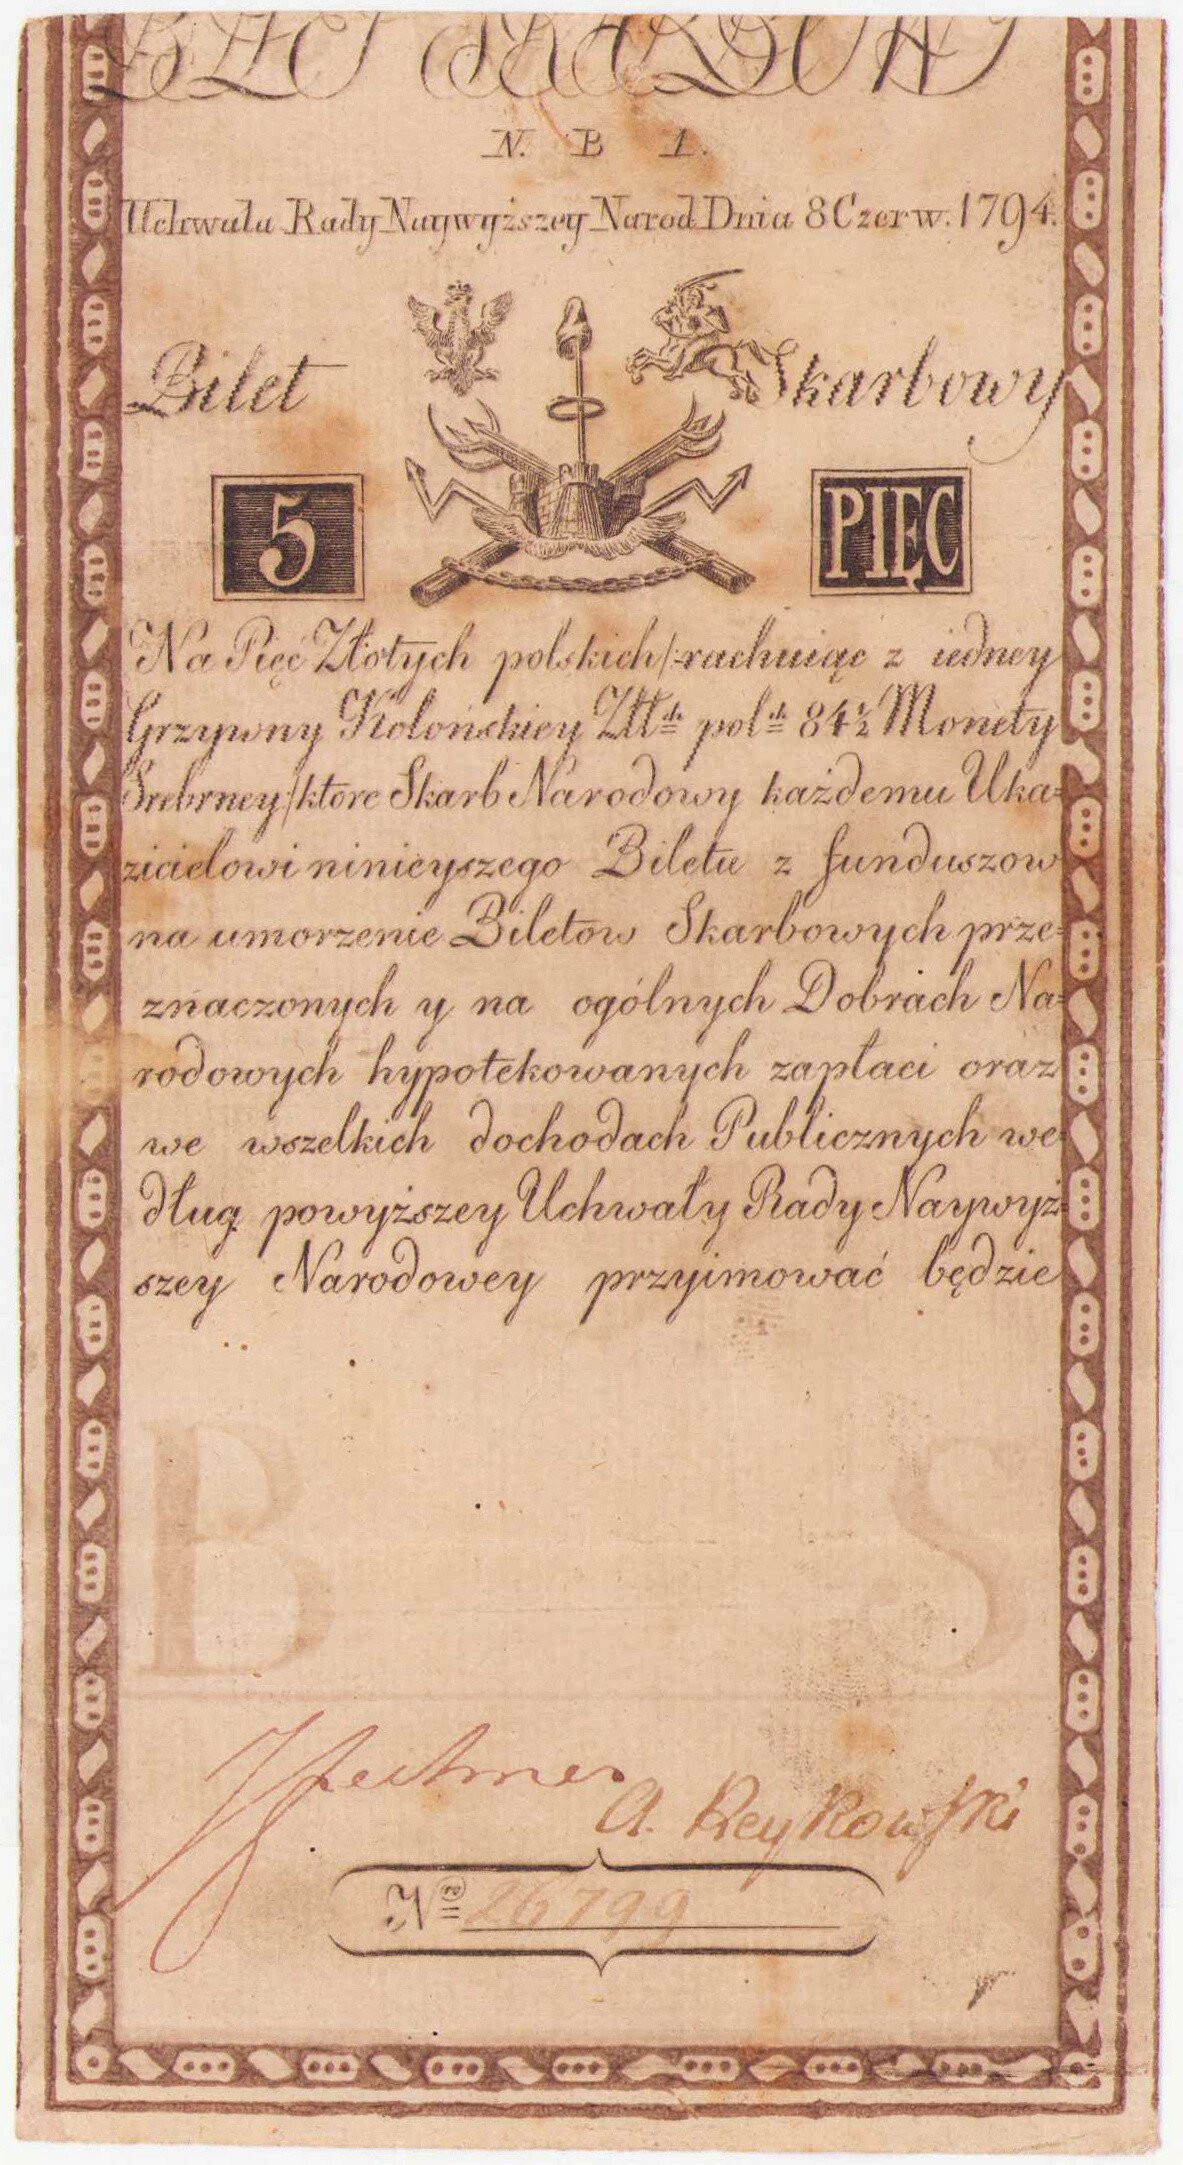 N. B 1.
Uchwała Rady Naywyższey Narod Dnia 8 Czerw. 1794.
Bilet Skarbowy
5 PIĘC
Na Pięć Złotych polskich /: rachuiąc z iedney
Grzywny Kolońskiey Złł: ch pol: ch 84 1/2 Monety
Srebrney :/ ktore Skarb Narodowy każdemu Uka=
zicielowi ninieyszego Biletu z funduszow
na umorzenie Biletow Skarbowych prze=
znaczonych y na ogólnych Dobrach Na=
rodowych hypotekowanych zapłaci oraz
we wszelkich dochodach Publicznych we=
dług powyższey Uchwały Rady Naywyż=
szey Narodowey przyimować będzie
B S
A. Reykowski
No 26799